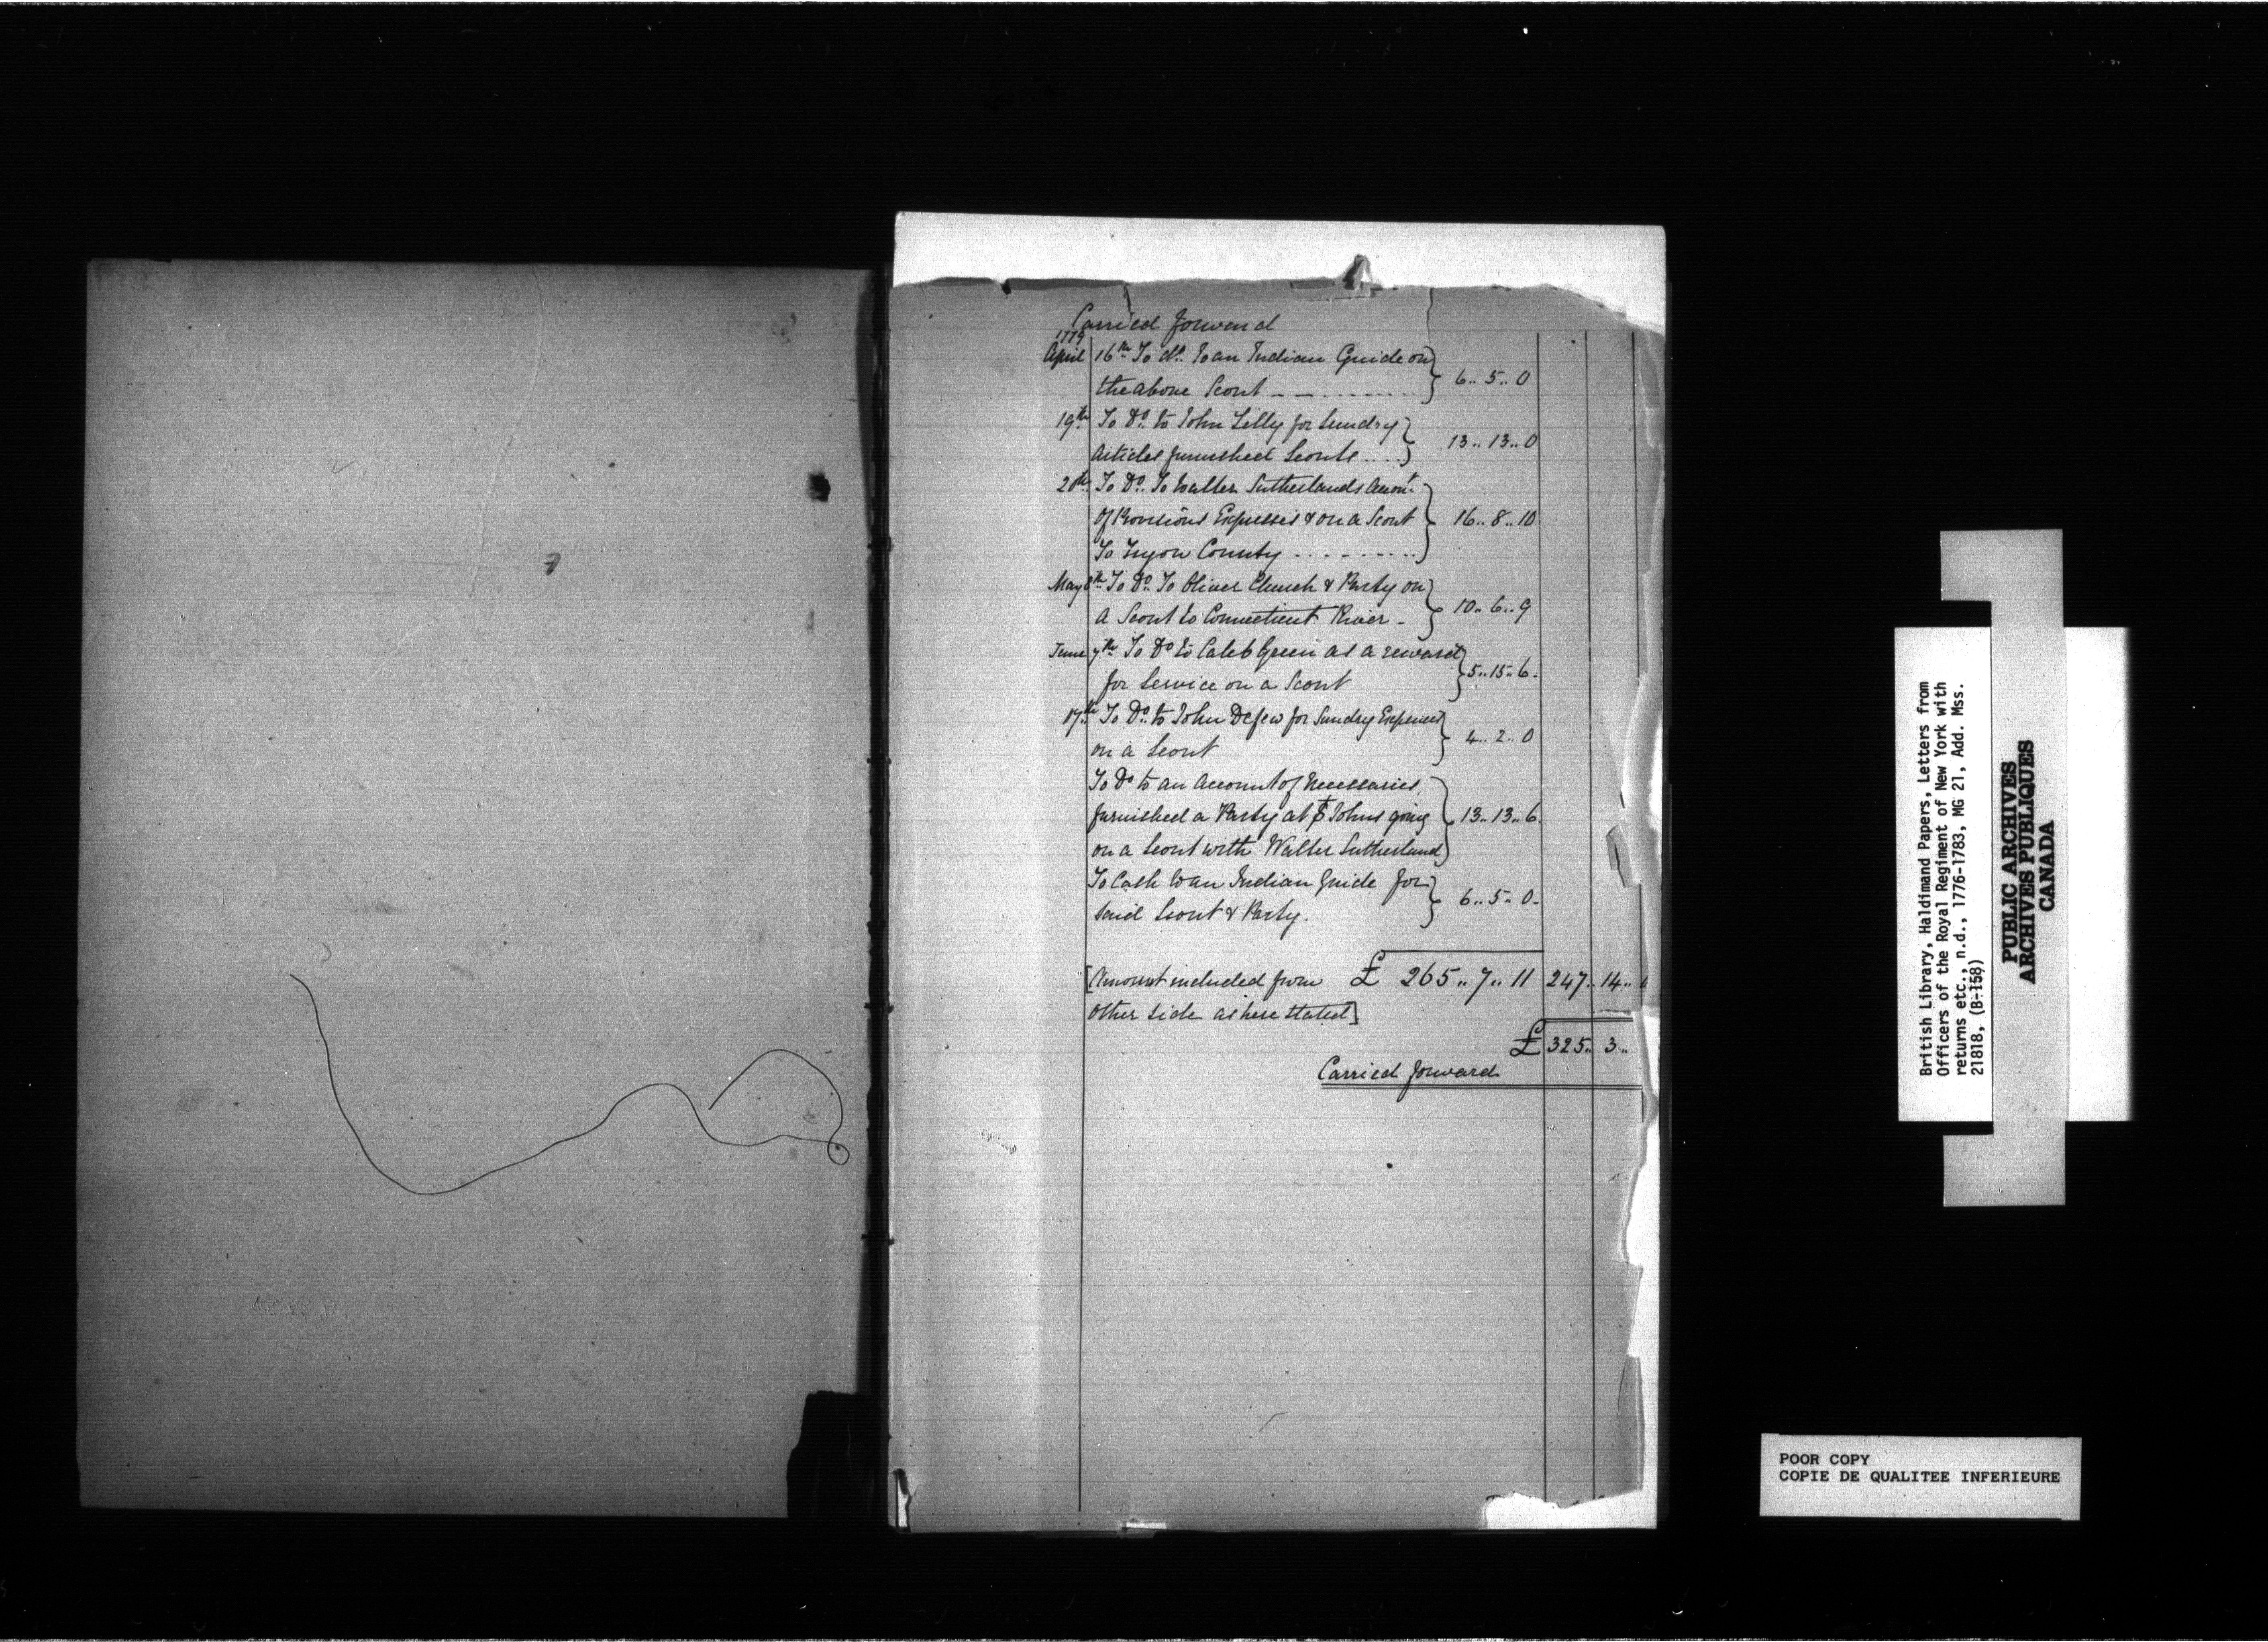 Carried forward
1779
April 16th To do. To an Indian Guide on
the above Scout - - - - - - - - - - 6.. 5.. 0
19th To Do. to John Lilly for Sundry
Articles furnished Scouts .... 13.. 13.. 0
20th To Do. To Walter Sutherlands Accont.
Of Provisions Expenses & on a Scout 16.. 8.. 10
To Tryon County - - - - - - - - -
May 8th To Do. To Oliver Church & Party on
A Scout to Connecticut River - 10.. 6.. 9
June 7th To Do to Caleb Green as a reward
for Service on a Scout 5.. 15.. 6.
17th To Do. to John Defew for Sundry Expenses
on a Scout 4.. 2.. 0
To Do to an Account of Necessaries
furnished a Party at St Johns going 13.. 13.. 6.
on a Scout with Walter Sutherland
To Cash to an Indian Guide for
said Scout & Party. 6.. 5.. 0.
[Amount included from £ 265.. 7.. 11 247.. 14..
Other side as here stated]
£ 325.. 3..
Carried forward
British Library, Haldimand Papers, Letters from
Officers of the Royal Regiment of New York with
returns etc., n.d., 1776-1783, MG 21, Add. Mss.
21818, (B-158)
PUBLIC ARCHIVES
ARCHIVES PUBLIQUES
CANADA
POOR COPY
COPIE DE QUALITEE INFERIEURE